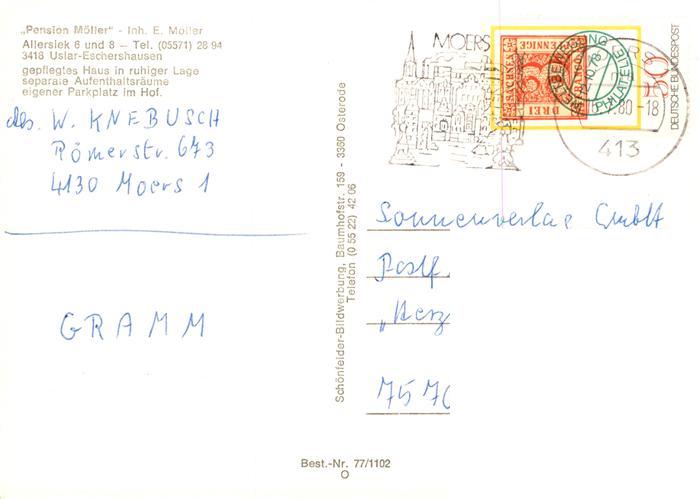 „Pension Möller" - Inh. E. Möller
Allersiek 6 und 8 – Tel. (05571) 28 94
3418 Uslar-Eschershausen
gepflegtes Haus in ruhiger Lage
separate Aufenthaltsräume
eigener Parkplatz im Hof.
abs. W. KNEBUSCH
Römerstr. 673
4130 Moers 1
GRAMM
Schönfelder-Bildwerbung, Baumhofstr. 159 - 3360 Osterode
Telefon (0 55 22) 42 06
MOERS
DREI
PFENNIGE
PHILATELIE
50
DEUTSCHE BUNDESPOST
80-18
413
Sonnenverlag GmbH
Postf.
„Herz
757
Best.-Nr. 77/1102